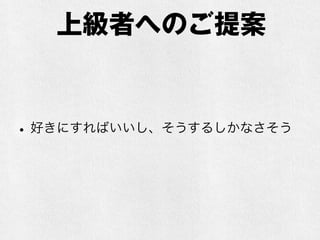 上級者へのご提案
• 好きにすればいいし、そうするしかなさそう